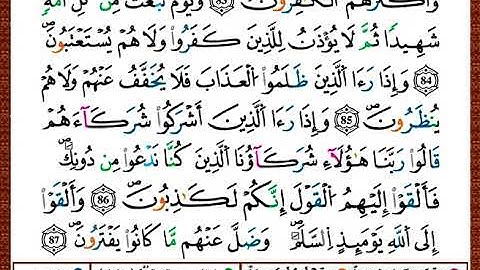 وَأَكْثَرُهُمُ ٱلْكَٰفِرُونَ ۝٨٣ وَيَوْمَ نَبْعَثُ مِن كُلِّ أُمَّةٍۢ
شَهِيدًۭا ثُمَّ لَا يُؤْذَنُ لِلَّذِينَ كَفَرُوا۟ وَلَا هُمْ يُسْتَعْتَبُونَ
۝٨٤ وَإِذَا رَءَا ٱلَّذِينَ ظَلَمُوا۟ ٱلْعَذَابَ فَلَا يُخَفَّفُ عَنْهُمْ وَلَا هُمْ
يُنظَرُونَ ۝٨٥ وَإِذَا رَءَا ٱلَّذِينَ أَشْرَكُوا۟ شُرَكَآءَهُمْ
قَالُوا۟ رَبَّنَا هَٰٓؤُلَآءِ شُرَكَآؤُنَا ٱلَّذِينَ كُنَّا نَدْعُوا۟ مِن دُونِكَ ۖ
فَأَلْقَوْا۟ إِلَيْهِمُ ٱلْقَوْلَ إِنَّكُمْ لَكَٰذِبُونَ ۝٨٦ وَأَلْقَوْا۟
إِلَى ٱللَّهِ يَوْمَئِذٍ ٱلسَّلَمَ ۖ وَضَلَّ عَنْهُم مَّا كَانُوا۟ يَفْتَرُونَ ۝٨٧